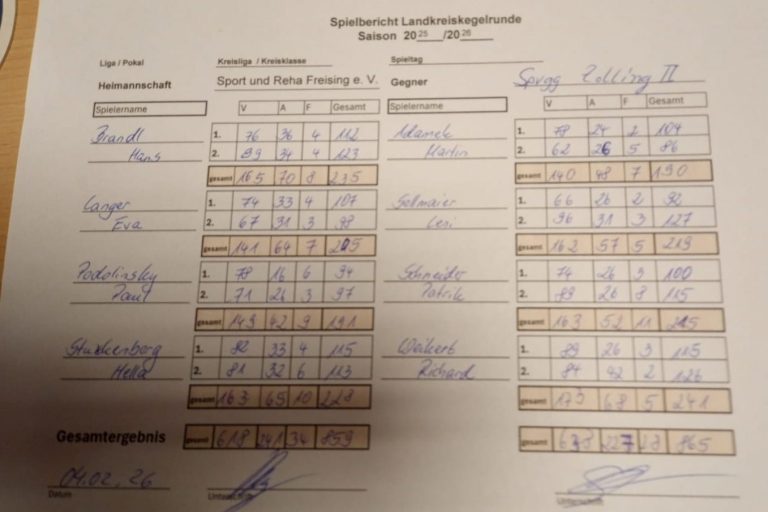 Spielbericht Landkreiskegelrunde
Saison 2025 /2026
Liga / Pokal Kreisliga / Kreisklasse Spieltag
Heimannschaft Sport und Reha Freising e. V. Gegner Spvgg Zolling II
Spielername V A F Gesamt Spielername V A F Gesamt
Brandl 1. 76 36 4 112 Adamek 1. 78 2 104
Hans 2. 89 34 4 123 Martin 2. 62 26 5 86
gesamt 165 70 8 235 gesamt 140 48 7 190
Langer 1. 74 33 4 107 Sellmaier 1. 66 26 2 92
Eva 2. 67 31 3 98 Leni 2. 96 31 3 127
gesamt 141 64 7 205 gesamt 162 57 5 219
Podolinsky 1. 78 16 6 94 Schneider 1. 74 26 3 100
Paul 2. 71 26 3 97 Patrik 2. 89 26 8 115
gesamt 149 42 9 191 gesamt 163 52 11 215
Stuckenberg 1. 82 33 4 115 Weikert 1. 89 26 3 115
Hella 2. 81 32 6 113 Richard 2. 84 42 2 126
gesamt 163 65 10 228 gesamt 173 68 5 241
Gesamtergebnis gesamt 618 241 34 859 gesamt 638 227 28 865
04.02.26
Datum Unterschrift Unterschrift